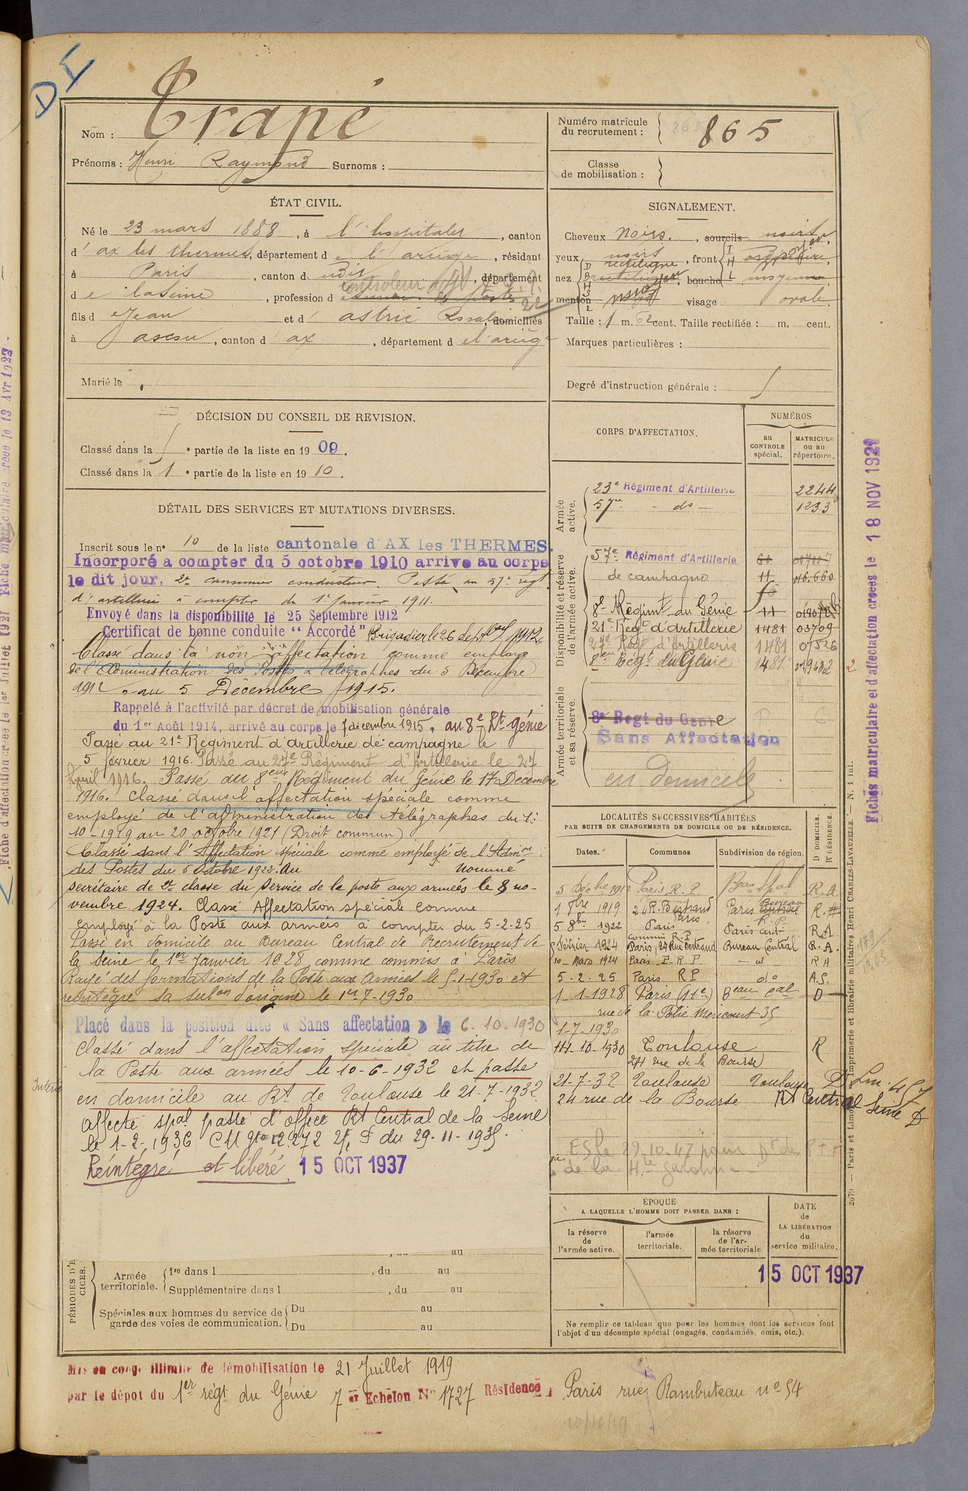 DI
Nom : Trapé
Prénoms : Henri Raymond Surnoms :
Numéro matricule du recrutement : 865
Classe de mobilisation :
ÉTAT CIVIL.
Né le 23 mars 1888, à l'hospitalet, canton
d'ax les thermes, département de l'ariège, résidant
à Paris, canton d udit, département
de la Seine, profession d
fils d e Jean et d' astrie Rosalie, domiciliés
à ascou, canton d'ax, département de l'ariège
Marié le
SIGNALEMENT.
Cheveux noirs, sourcils noirs
yeux noirs, front
nez rectiligne, bouche moyenne
menton visage ovale
Taille : 1 m. 62 cent. Taille rectifiée : m. cent.
Marques particulières :
Degré d'instruction générale : 5
DÉCISION DU CONSEIL DE REVISION.
Classé dans la e partie de la liste en 1909.
Classé dans la 1 e partie de la liste en 1910.
DÉTAIL DES SERVICES ET MUTATIONS DIVERSES.
Inscrit sous le n° 10 de la liste cantonale d'AX les THERMES.
Incorporé a compter du 5 octobre 1910 arrive au corps
le dit jour, 2e canonnier conducteur. Passé au 57e régt
d'artillerie à compter du 1er Janvier 1911.
Envoyé dans la disponibilité le 25 Septembre 1912
Certificat de bonne conduite "Accordé" Brigadier le 26 de 7bre 1912
Classé dans la non affectation comme employé
de l'Administration des Postes & télégraphes du 5 Décembre
1912 au 5 Décembre 1915.
Rappelé à l'activité par décret de mobilisation générale
du 1er Août 1914, arrivé au corps le 7 décembre 1915, au 8e Rt Génie
Passé au 21e Régiment d'artillerie de campagne le
5 février 1916. Passé au 27e Régiment d'Artillerie le 27
Avril 1916. Passé au 8eme Régiment du Génie le 17 Décembre
1916. Classé dans l'affectation spéciale comme
employé de l'administration des télégraphes du 1:
10-1919 au 20 octobre 1921 (Droit commun)
Classé dans l'Affectation spéciale comme employé de l'Admon
des Postes du 6 octobre 1922. au Nommé
secrétaire de 2e classe du Service de la poste aux armées le 8 no-
vembre 1924. Classé Affectation spéciale comme
employé à la Poste aux armées à compter du 5-2-25
Passé en domicile au Bureau Central de Recrutement de
la Seine le 1er Janvier 1928, comme commis à Paris
Rayé des formations de la Poste aux Armées le 5-1-1930 et
réintégré sa subon d'origine le 1er 7-1930
Placé dans la position dite « Sans affectation » le 6.10.1930
Classé dans l'affectation spéciale au titre de
la Poste aux armées le 10-6-1932 et passé
en domicile au Rt de Toulouse le 21-7-1932
Affecté spal passé d'office Rt Central de la Seine
le 1-2-1936 du 29-11-1935.
Réintégré et libéré 15 OCT 1937
CORPS D'AFFECTATION.
NUMÉROS
au CONTROLE spécial.
MATRICULE ou au répertoire.
Armée active.
23e Régiment d'Artillerie 2244
57me - do - 1233
Disponibilité et réserve de l'armée active.
57e Régiment d'Artillerie
de campagne
8e Régimt du Génie
21e Régt d'artillerie 1481 03709
27e Régt d'artillerie 1481 07526
8eme Régt du Génie 1481
Armée territoriale et sa réserve.
8e Regt du Genie
Sans Affectation
en domicile
LOCALITÉS SUCCESSIVES HABITÉES
PAR SUITE DE CHANGEMENTS DE DOMICILE OU DE RÉSIDENCE.
Dates. Communes Subdivision de région. D DOMICILE. R RÉSIDENCE.
Paris R.P. R.A
1 8bre 1919 2 R. Bertrand Paris Paris R.
5 8bre 1922 Paris Paris cent RA
Février 1924 Paris, 2 Rue Bertrand Bureau Central R.A.
10-Mars 1924 Paris R.P. RA
5-2-25 Paris RP do A.S.
1-1-1928 Paris (11e) Beau Cal D
rue de la Folie Méricourt 35
1-7-1930
14-10-1930 Toulouse R
24 rue de la Bourse
21-7-32 Toulouse Toulouse D
24 rue de la Bourse Rt Central Seine D
ÉPOQUE
A LAQUELLE L'HOMME DOIT PASSER DANS :
la réserve de l'armée active.
l'armée territoriale.
la réserve de l'armée territoriale
DATE de LA LIBÉRATION du service militaire.
15 OCT 1937
Ne remplir ce tableau que pour les hommes dont les services font
l'objet d'un décompte spécial (engagés, condamnés, omis, etc.).
PÉRIODES D'EXERCICES.
Armée territoriale.
1re dans l , du au
Supplémentaire dans l , du au
Spéciales aux hommes du service de garde des voies de communication.
Du au
Du au
Mis en congé illimité de démobilisation le 21 Juillet 1919
par le dépot du 1er régt du Génie 7 er Echelon N° 1727 Résidence, Paris rue Rambuteau n° 54
Fiches matriculaire et d'affection créées le 18 NOV 1927
2070 — Paris et Limoges, Imprimerie et librairie militaires Henri CHARLES-LAVAUZELLE. — N. 1 int.